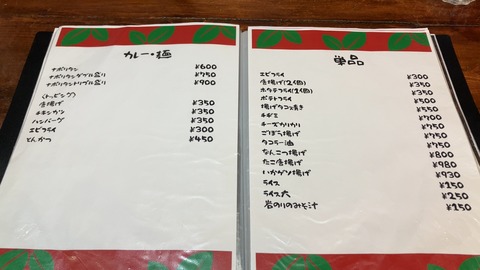 カレー・麺
ナポリタン ¥600
ナポリタンダブル盛り ¥750
ナポリタントリプル盛り ¥900
〈トッピング〉
唐揚げ ¥350
チキンカツ ¥350
ハンバーグ ¥350
エビフライ ¥300
とんかつ ¥450
単品
エビフライ ¥300
唐揚げ(2個) ¥350
ホタテフライ(2個) ¥350
ポテトフライ ¥500
揚げタコ焼き ¥550
チヂミ ¥700
チーズカリカリ ¥750
ごぼう揚げ ¥750
タコラー油 ¥750
なんこつ揚げ ¥800
たこ唐揚げ ¥980
いかゲソ揚げ ¥930
ライス ¥150
ライス大 ¥250
岩のりのみそ汁 ¥150